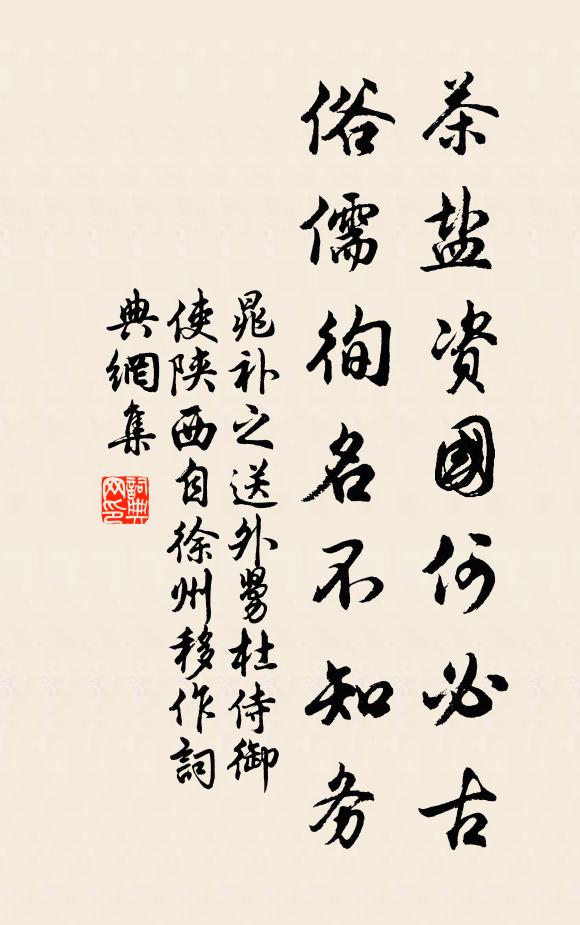 茶盐资國何必古
俗儒徇名不知务
晁补之送外舅杜侍御
使陕西自徐州移作詞
典網集
詞典网印